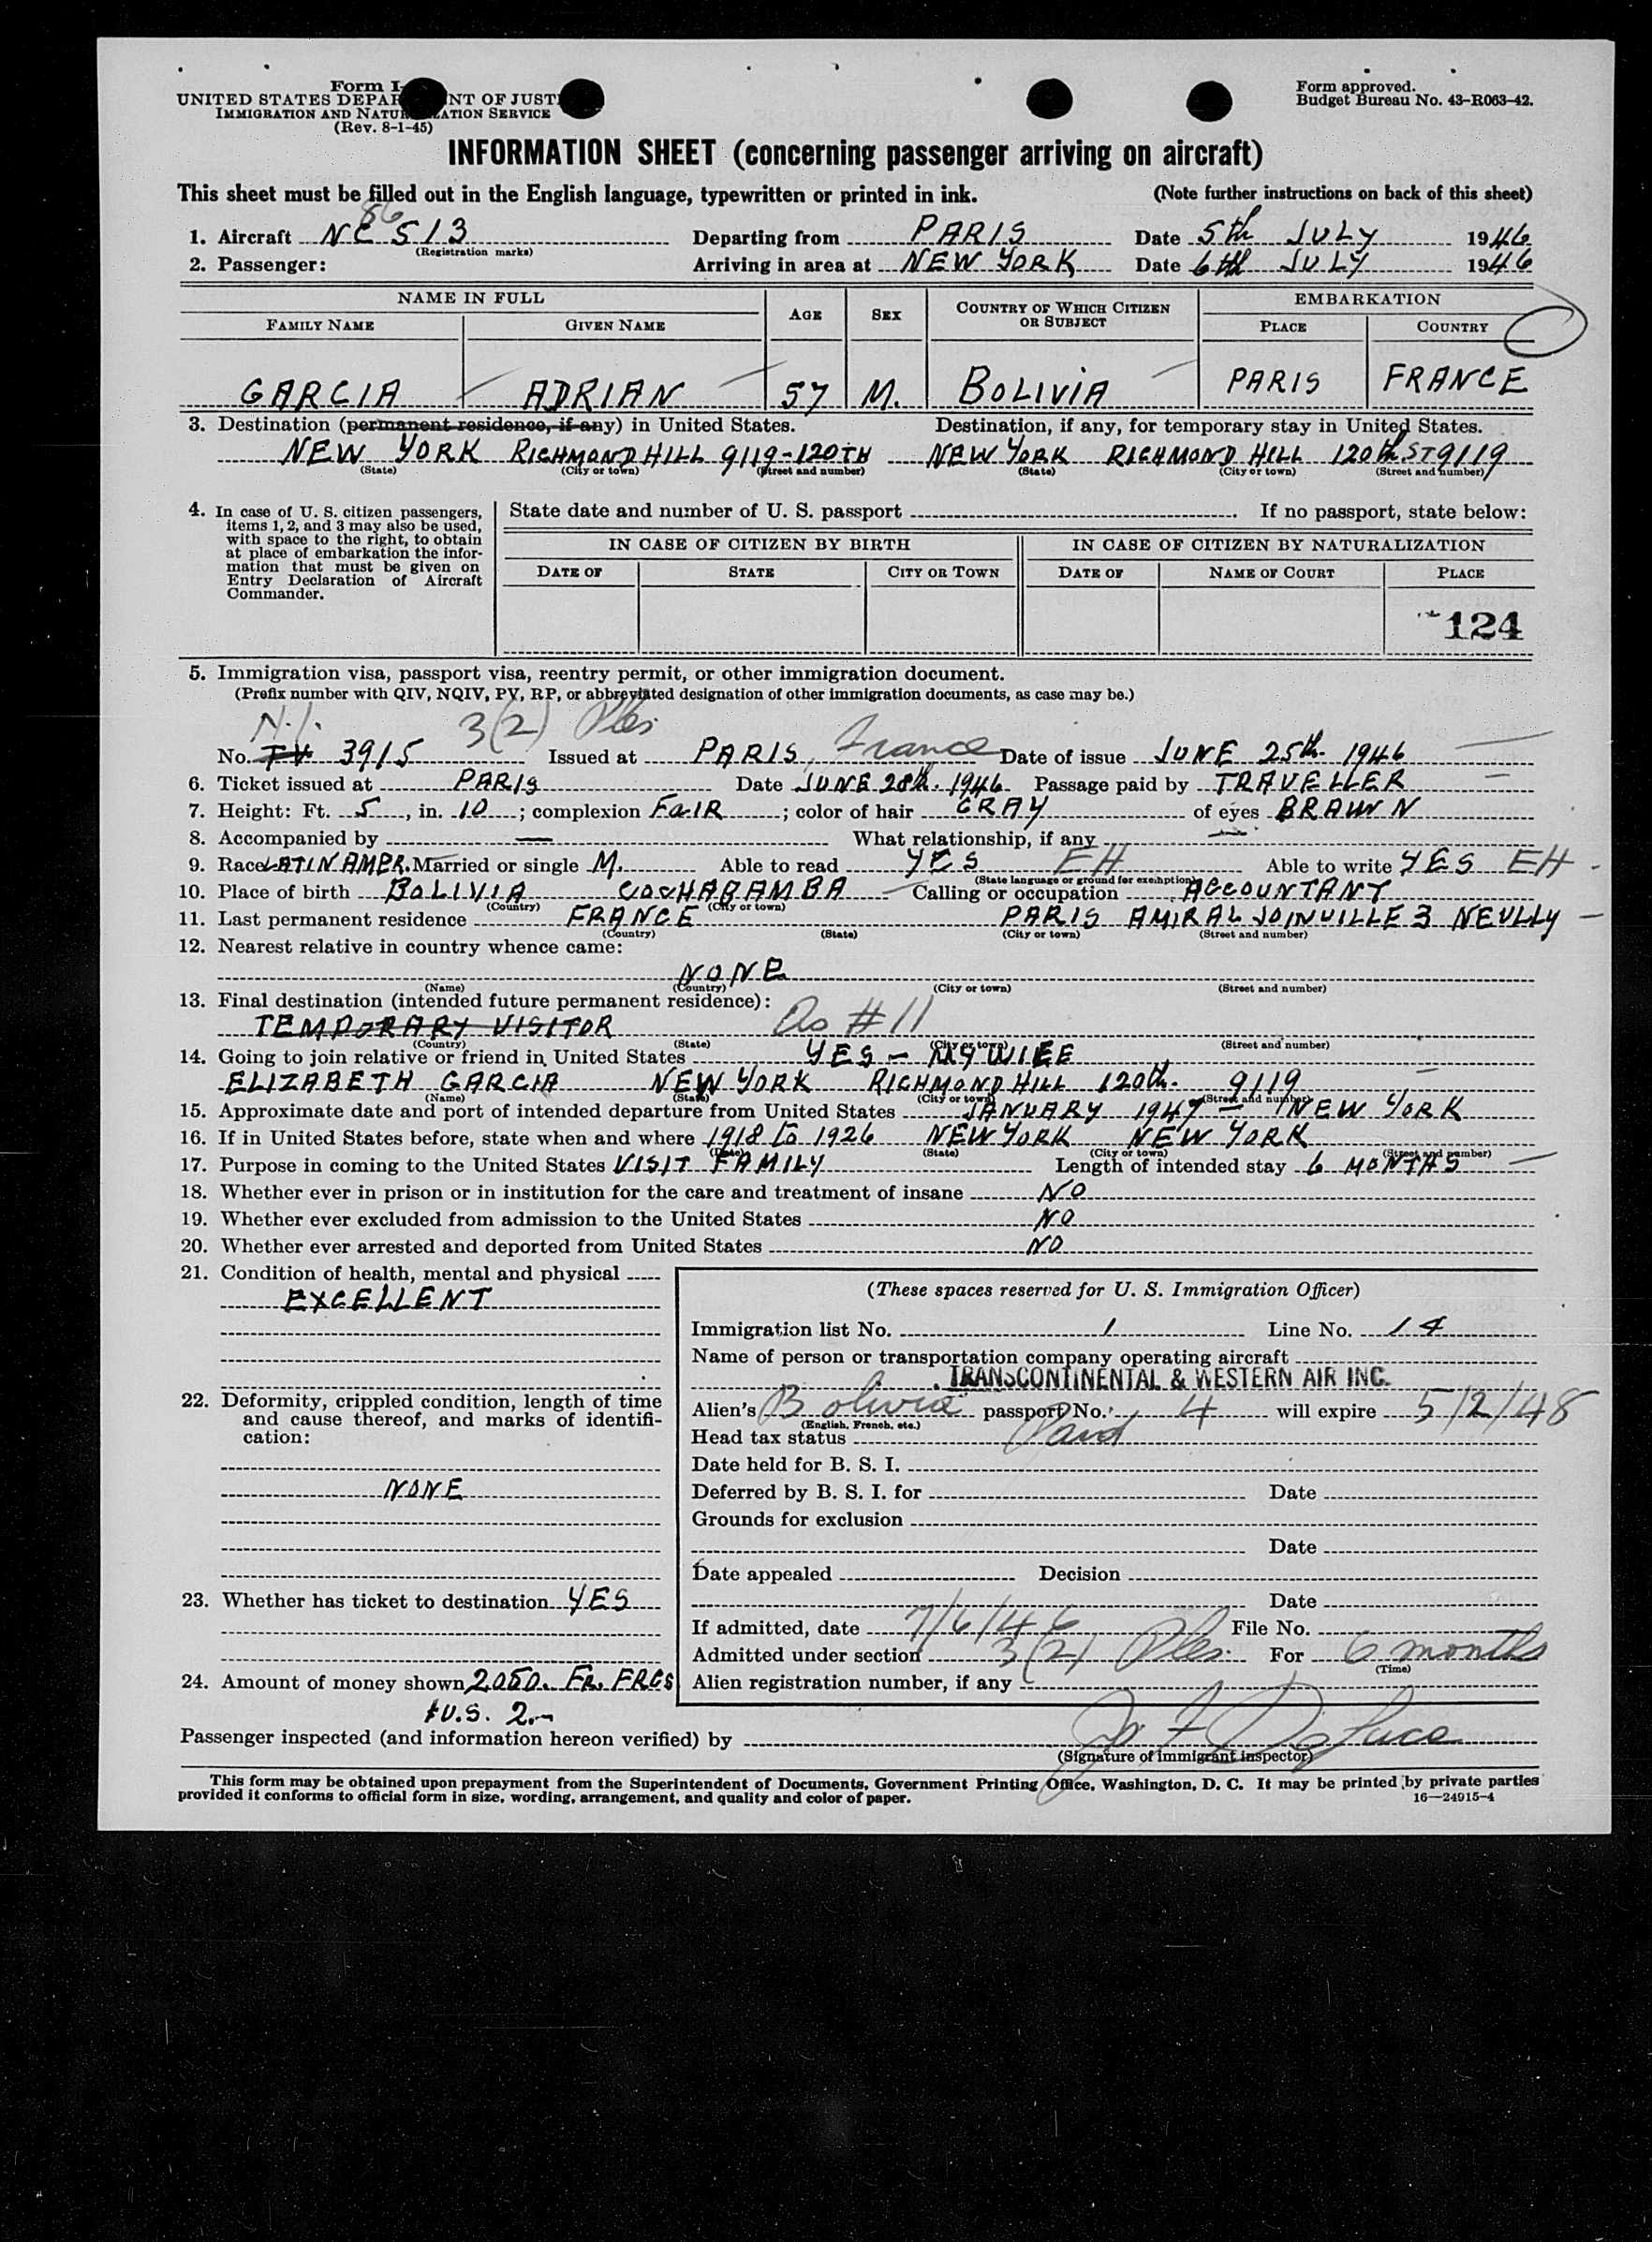 Form I-
UNITED STATES DEPAR NT OF JUSTI
IMMIGRATION AND NATUR ZATION SERVICE
(Rev. 8-1-45)
Form approved.
Budget Bureau No. 43-R063-42.
INFORMATION SHEET (concerning passenger arriving on aircraft)
This sheet must be filled out in the English language, typewritten or printed in ink. (Note further instructions on back of this sheet)
86
1. Aircraft NC 513 Departing from PARIS Date 5th JULY 1946
(Registration marks)
2. Passenger: Arriving in area at NEW YORK Date 6th JULY 1946
NAME IN FULL AGE SEX COUNTRY OF WHICH CITIZEN OR SUBJECT EMBARKATION
FAMILY NAME GIVEN NAME PLACE COUNTRY
GARCIA ADRIAN 57 M. BOLIVIA PARIS FRANCE
3. Destination (permanent residence, if any) in United States. Destination, if any, for temporary stay in United States.
NEW YORK RICHMOND HILL 9119-120TH NEW YORK RICHMOND HILL 120th ST 9119
(State) (City or town) (Street and number) (State) (City or town) (Street and number)
4. In case of U. S. citizen passengers,
items 1, 2, and 3 may also be used,
with space to the right, to obtain
at place of embarkation the infor-
mation that must be given on
Entry Declaration of Aircraft
Commander.
State date and number of U. S. passport . If no passport, state below:
IN CASE OF CITIZEN BY BIRTH IN CASE OF CITIZEN BY NATURALIZATION
DATE OF STATE CITY OR TOWN DATE OF NAME OF COURT PLACE
124
5. Immigration visa, passport visa, reentry permit, or other immigration document.
(Prefix number with QIV, NQIV, PV, RP, or abbreviated designation of other immigration documents, as case may be.)
N.I. 3(2) Ples
No. TV 3915 Issued at PARIS, France Date of issue JUNE 25th. 1946
6. Ticket issued at PARIS Date JUNE 28th. 1946 Passage paid by TRAVELLER
7. Height: Ft. 5, in. 10; complexion FaIR; color of hair GRAY of eyes BRAUNN
8. Accompanied by — What relationship, if any —
9. Race LATIN AMER. Married or single M. Able to read YES EH Able to write YES EH
(State language or ground for exemption)
10. Place of birth BOLIVIA COCHABAMBA Calling or occupation ACCOUNTANT
(Country) (City or town)
11. Last permanent residence FRANCE PARIS AMIRAL JOINVILLE 3 NEULLY
(Country) (State) (City or town) (Street and number)
12. Nearest relative in country whence came:
NONE
(Name) (Country) (City or town) (Street and number)
13. Final destination (intended future permanent residence):
TEMPORARY VISITOR As #11
(Country) (State) (City or town) (Street and number)
14. Going to join relative or friend in United States YES - MY WIFE
ELIZABETH GARCIA NEW YORK RICHMOND HILL 120th. 9119
(Name) (State) (City or town) (Street and number)
15. Approximate date and port of intended departure from United States JANUARY 1947 - NEW YORK
16. If in United States before, state when and where 1918 to 1926 NEW YORK NEW YORK
(Date) (State) (City or town) (Street and number)
17. Purpose in coming to the United States VISIT FAMILY Length of intended stay 6 MONTHS
18. Whether ever in prison or in institution for the care and treatment of insane NO
19. Whether ever excluded from admission to the United States NO
20. Whether ever arrested and deported from United States NO
21. Condition of health, mental and physical
EXCELLENT
22. Deformity, crippled condition, length of time
and cause thereof, and marks of identifi-
cation:
NONE
23. Whether has ticket to destination YES
24. Amount of money shown 2050. FR. FRCS
$U.S. 2.-
(These spaces reserved for U. S. Immigration Officer)
Immigration list No. 1 Line No. 14
Name of person or transportation company operating aircraft
TRANSCONTINENTAL & WESTERN AIR INC.
Alien's Bolivia passport No. 4 will expire 5/2/48
(English, French, etc.)
Head tax status Paid
Date held for B. S. I.
Deferred by B. S. I. for Date
Grounds for exclusion
Date
Date appealed Decision
Date
If admitted, date 7/6/46 File No.
Admitted under section 3(2) Ples. For 6 months
(Time)
Alien registration number, if any
Passenger inspected (and information hereon verified) by
(Signature of immigrant inspector)
This form may be obtained upon prepayment from the Superintendent of Documents, Government Printing Office, Washington, D. C. It may be printed by private parties
provided it conforms to official form in size, wording, arrangement, and quality and color of paper. 16—24915-4